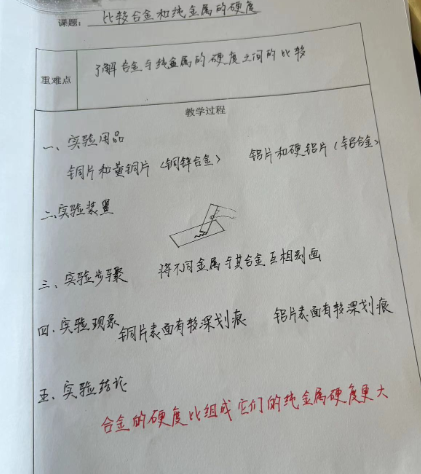 课题: 比较合金和纯金属的硬度
重难点 了解合金与纯金属的硬度之间的比较
教学过程
一、实验用品
铜片和黄铜片(铜锌合金) 铝片和硬铝片(铝合金)
二、实验装置
三、实验步骤 将不同金属与其合金互相刻画
四、实验现象 铜片表面有较深划痕 铝片表面有较深划痕
五、实验结论
合金的硬度比组成它们的纯金属硬度更大